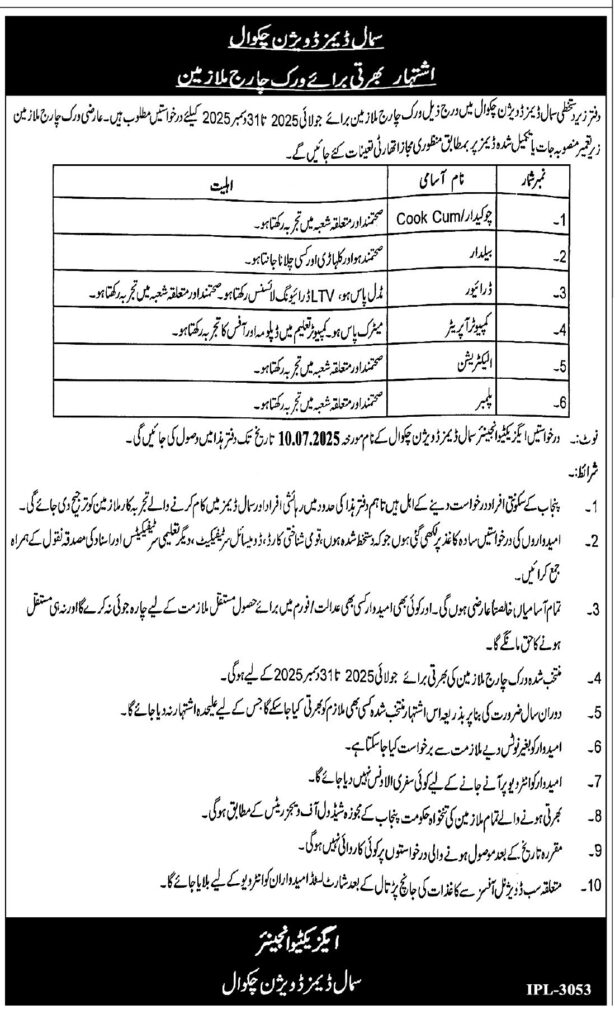 سمال ڈیمز ڈویژن چکوال
اشتہار بھرتی برائے ورک چارج ملازمین
دفتر زیر دستخطی سمال ڈیمز ڈویژن چکوال میں درج ذیل ورک چارج ملازمین برائے جولائی 2025 تا 31 دسمبر 2025 کیلئے درخواستیں مطلوب ہیں۔ عارضی ورک چارج ملازمین
زیر تعمیر منصوبہ جات یا تکمیل شدہ ڈیمز پر بمطابق منظوری مجاز اتھارٹی تعینات کئے جائیں گے۔
نمبر شمار نام آسامی اہلیت
1۔ چوکیدار/Cook Cum صحتمند اور متعلقہ شعبہ میں تجربہ رکھتا ہو۔
2۔ بیلدار صحتمند ہو اور کلہاڑی اور کسی چلانا جانتا ہو۔
3۔ ڈرائیور مڈل پاس ہو، LTV ڈرائیونگ لائسنس رکھتا ہو۔ صحتمند اور متعلقہ شعبہ میں تجربہ رکھتا ہو۔
4۔ کمپیوٹر آپریٹر میٹرک پاس ہو۔ کمپیوٹر تعلیم میں ڈپلومہ اور آفس کا تجربہ رکھتا ہو۔
5۔ الیکٹریشن صحتمند اور متعلقہ شعبہ میں تجربہ رکھتا ہو۔
6۔ پلمبر صحتمند اور متعلقہ شعبہ میں تجربہ رکھتا ہو۔
نوٹ:۔ درخواستیں ایگزیکٹیو انجینئر سمال ڈیمز ڈویژن چکوال کے نام مورخہ 10.07.2025 تاریخ تک دفتر ہذا میں وصول کی جائیں گی۔
شرائط:۔
1۔ پنجاب کے سکونتی افراد درخواست دینے کے اہل ہیں تاہم دفتر ہذا کی حدود میں رہائشی افراد اور سمال ڈیمز میں کام کرنے والے تجربہ کار ملازمین کو ترجیح دی جائے گی۔
2۔ امیدواروں کی درخواستیں سادہ کاغذ پر لکھی گئی ہوں جو کہ دستخط شدہ ہوں، قومی شناختی کارڈ، ڈومیسائل سرٹیفکیٹ، دیگر تعلیمی سرٹیفکیٹس اور اسناد کی مصدقہ نقول کے ہمراہ
جمع کرائیں۔
3۔ تمام آسامیاں خالصتاً عارضی ہوں گی۔ اور کوئی بھی امیدوار کسی بھی عدالت/فورم میں برائے حصول مستقل ملازمت کے لیے چارہ جوئی نہ کرے گا اور نہ ہی مستقل
ہونے کا حق مانگے گا۔
4۔ منتخب شدہ ورک چارج ملازمین کی بھرتی برائے جولائی 2025 تا 31 دسمبر 2025 کے لیے ہوگی۔
5۔ دوران سال ضرورت کی بنا پر بذریعہ اس اشتہار منتخب شدہ کسی بھی ملازم کو بھرتی کیا جا سکے گا جس کے لیے علیحدہ اشتہار نہ دیا جائے گا۔
6۔ امیدوار کو بغیر نوٹس دیے ملازمت سے برخواست کیا جا سکتا ہے۔
7۔ امیدوار کو انٹرویو پر آنے جانے کے لیے کوئی سفری الاونس نہیں دیا جائے گا۔
8۔ بھرتی ہونے والے تمام ملازمین کی تنخواہ حکومت پنجاب کے مجوزہ شیڈول آف ویجز ریٹس کے مطابق ہوگی۔
9۔ مقررہ تاریخ کے بعد موصول ہونے والی درخواستوں پر کوئی کاروائی نہیں ہوگی۔
10۔ متعلقہ سب ڈویژنل آفسز سے کاغذات کی جانچ پڑتال کے بعد شارٹ لسٹڈ امیدواران کو انٹرویو کے لیے بلایا جائے گا۔
ایگزیکٹیو انجینئر
سمال ڈیمز ڈویژن چکوال
IPL-3053